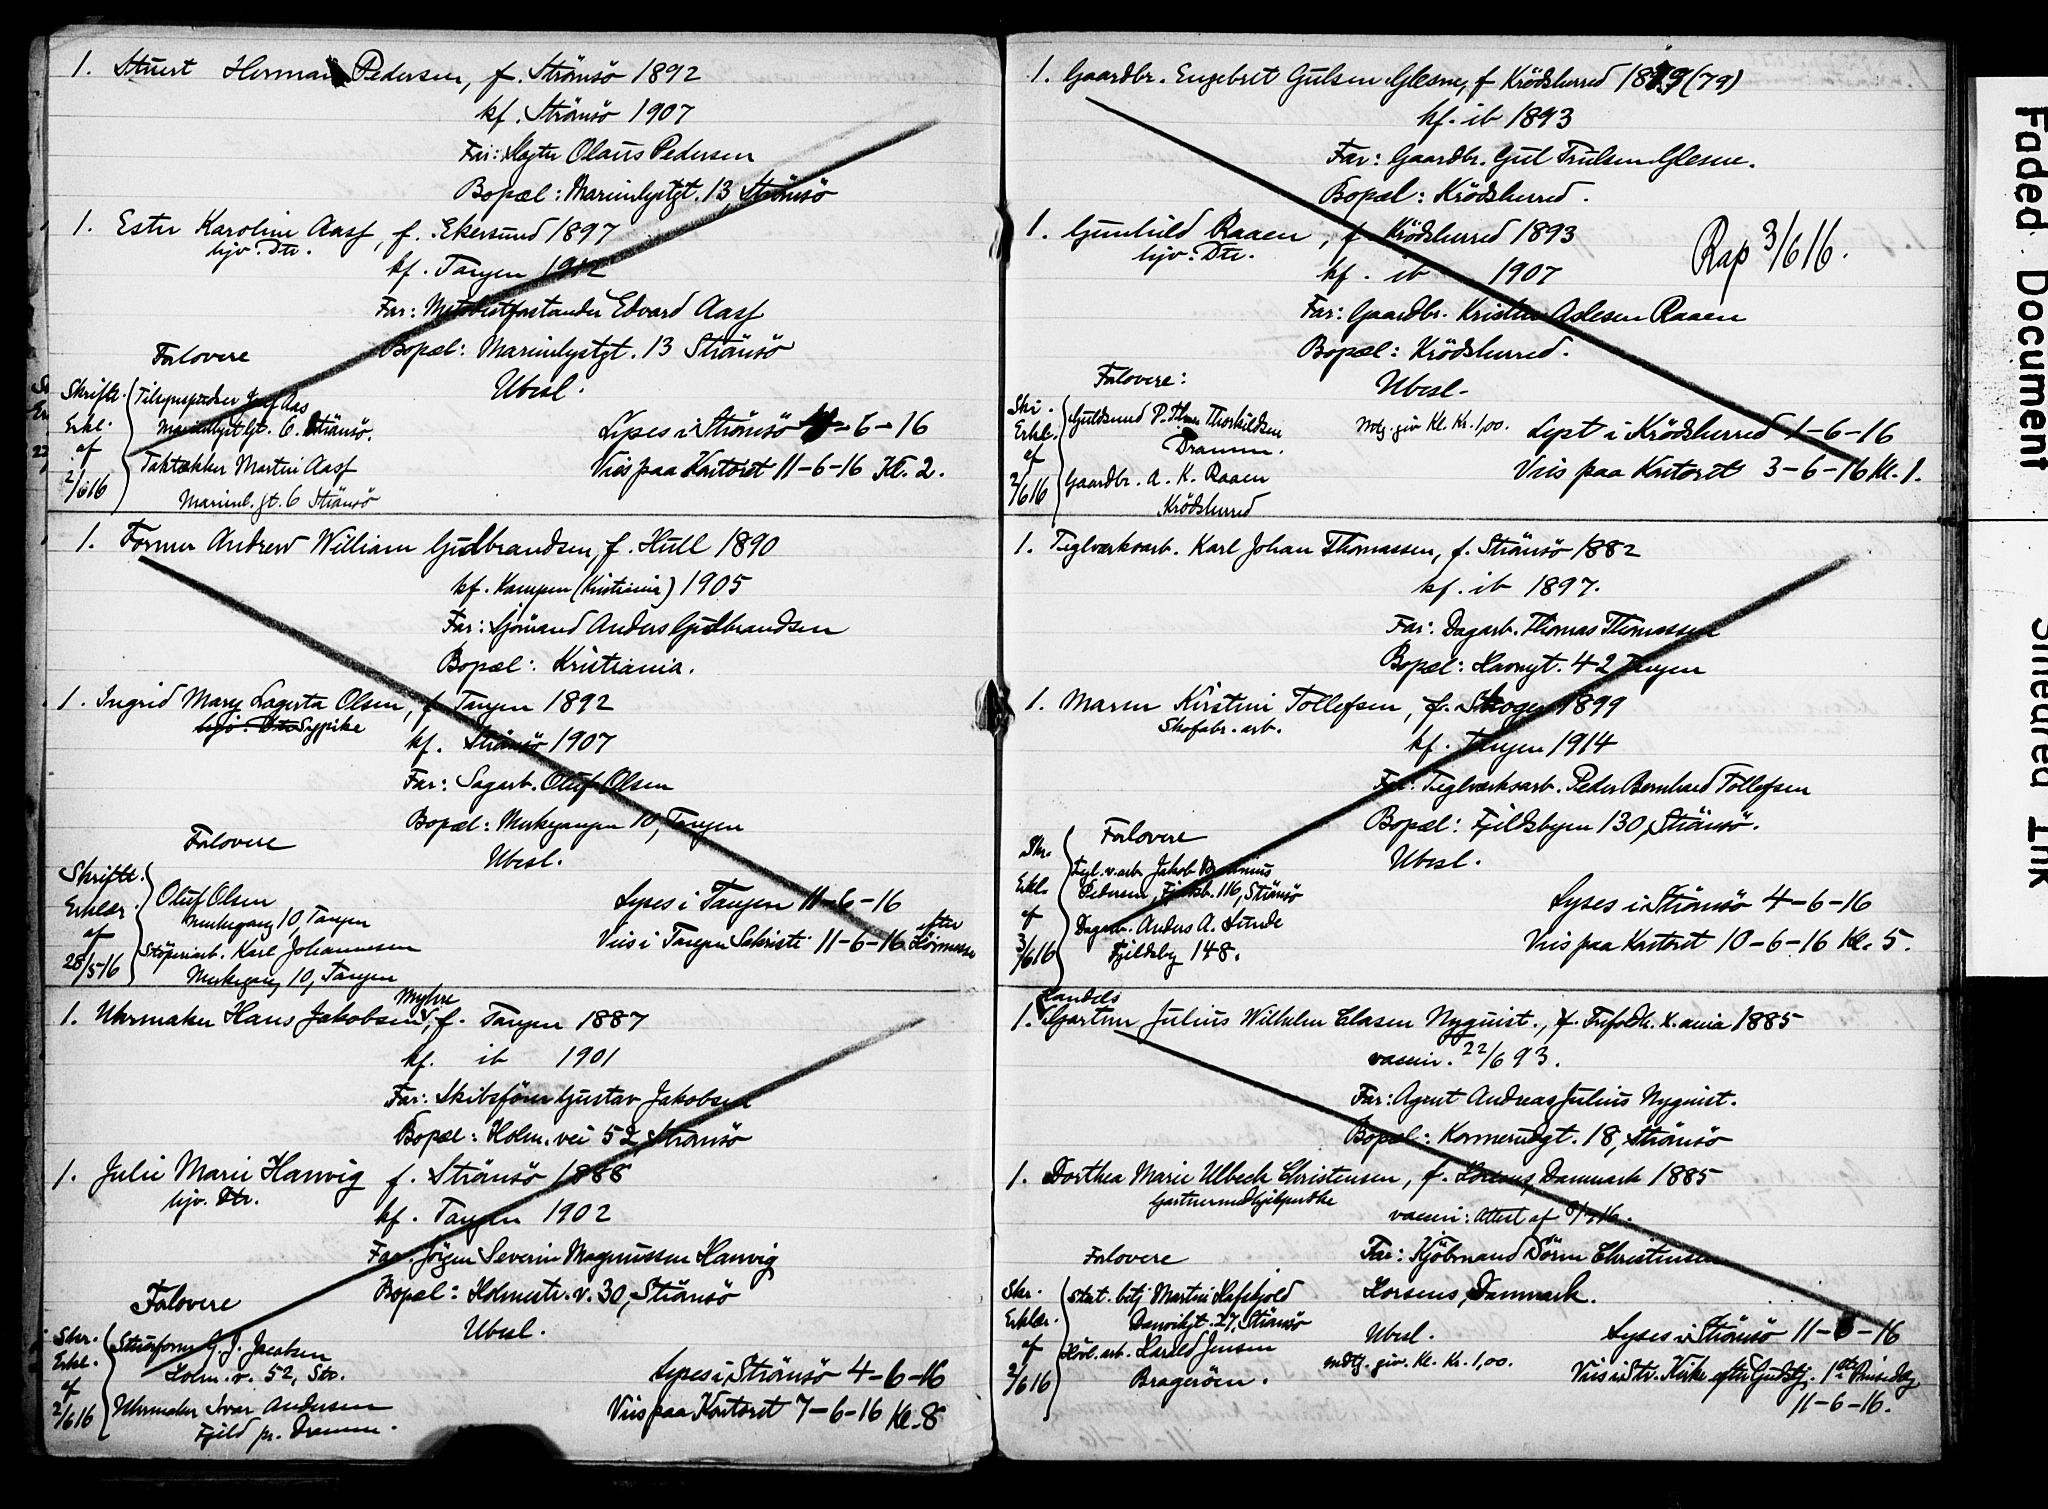 1. Stuert Herman Pedersen, f. Strömsö 1892
kf. Strömsö 1907
Far: Olaus Pedersen
Bopæl: Marienlystgt. 13, Strömsö
1. Ester Karoline Aass, f. Ekersund 1897
hjv. Dtr.
kf. Tangen 1912
Far: Metodistforstander Edvard Aass
Bopæl: Marienlystgt. 13 Strömsö
Forlovere
Ubesl.
Skriftl.
Erkl.
af
2/6 16
Aas
Marienlyst gt. 6. Strömsö.
Taktækker Martin Aass
Marienl. gt. 6 Strömsö
Lyses i Strömsö 4-6-16
Vies paa Kontoret 11-6-16 Kl. 2.
1. Former Andrew William Gulbrandsen, f. Hull 1890
kf. Kampen (Kristiania) 1905
Far: Sjömand Anders Gulbrandsen
Bopæl: Kristiania.
1. Ingrid Mary Lagerta Olsen, f. Tangen 1892
hjv. Dtr. Sypike
kf. Strömsö 1907
Far: Sagarb. Oluf Olsen
Bopæl: Merkegangen 10, Tangen
Forlovere
Ubesl.
Skriftl.
Erklær.
af
28/5-16
Oluf Olsen
Merkegang 10, Tangen
Stöperiarb. Karl Johannesen
Merkegang 10, Tangen
Lyses i Tangen 11-6-16
Vies i Tangen Sakristi 11-6-16 efter Höimesse
1. Uhrmaker Hans Jakobsen Myhre, f. Tangen 1887
kf. ib 1901
Far: Skibsförer Gustav Jakobsen
Bopæl: Holm. vei 52, Strömsö
1. Julie Marie Hanvig f. Strömsö 1888
hjv. Dtr.
kf. Tangen 1902
Far: Jörgen Severin Magnussen Hanvig
Bopæl: Holmestr. v. 30, Strömsö
Forlovere
Ubesl.
Skr.
Erkl.
af
2/6 16
G. J. Jacobsen
Holm. v. 52, Str.
Uhrmaker Ivar Andersen
Fjeld pr. Drammen.
Lyses i Strömsö 4-6-16
Vies paa Kontoret 7-6-16 Kl. 8
1. Gaardbr. Engebret Gulsen Glesne, f Krödsherred 1879 (79)
kf. ib 1893
Far: Gaardbr. Gul Trulsen Glesne.
Bopæl: Krödsherred.
1. Gunhild Raaen, f. Krödsherred 1893
hjv. Dtr.
kf. ib 1907
Rap 3/6 16.
Far: Gaardbr. Kristen Aslesen Raaen
Bopæl: Krödsherred.
Forlovere:
Ubesl.
Skr.
Erkl.
af
2/6 16
Guldsmed P. Thorkildsen
Dramm.
Gaardbr. A. K. Raaen
Krödsherred
Mdtg. giv. Kl. Kr. 1,00.
Lyst i Krödsherred 1-6-16
Vies paa Kontoret 3-6-16 Kl. 1.
1. Teglværksarb. Karl Johan Thomassen, f. Strömsö 1882
kf. ib 1897.
Far: Dagarb. Thomas Thomassen
Bopæl: Havnegt. 42 Tangen
1. Maren Kirstine Tollefsen, f. Skoger 1899
Skofabr. arb.
kf. Tangen 1914
Far: Teglværksarb. Peder Bernhard Tollefsen
Bopæl: Fjeldsbyen 130, Strömsö.
Forlovere
Ubesl.
Skr.
Erkl.
af
3/6 16
Tegl.v.arb. Jakob
Pedersen, Fjeldsb. 116, Strömsö
Dagarb. Anders A. Lunde
Fjeldsby 148.
Lyses i Strömsö 4-6-16
Vies paa Kontoret 10-6-16 Kl. 5.
1. Handels Gartner Julius Wilhelm Clasen Nyquist., f. Trefoldh. X.ania 1885
vaccin. 22/6 93.
Far: Agent Andreas Julius Nyquist.
Bopæl: Konnerudgt. 18, Strömsö
1. Dorthea Marie Ulbeck Christensen, f. Horsens, Danmark 1885
Gartnermedhjelperske
vaccin: Attest af
Far: Kjöbmand Sören Christensen
Horsens, Danmark.
Forlovere
Ubesl.
Skr.
Erklær.
af
2/6 16
Stat. betj. Martin Hafskjold
Danvikgt. 27, Strömsö
Harald Jensen
Brageröen.
Mdtg. giv. Kl. Kr. 1,00.
Lyses i Strömsö 11-6-16
Vies i Str. Kirke efter Gudstj. 1ste Pinsedag
11-6-16.
Faded Document
Smeared Ink